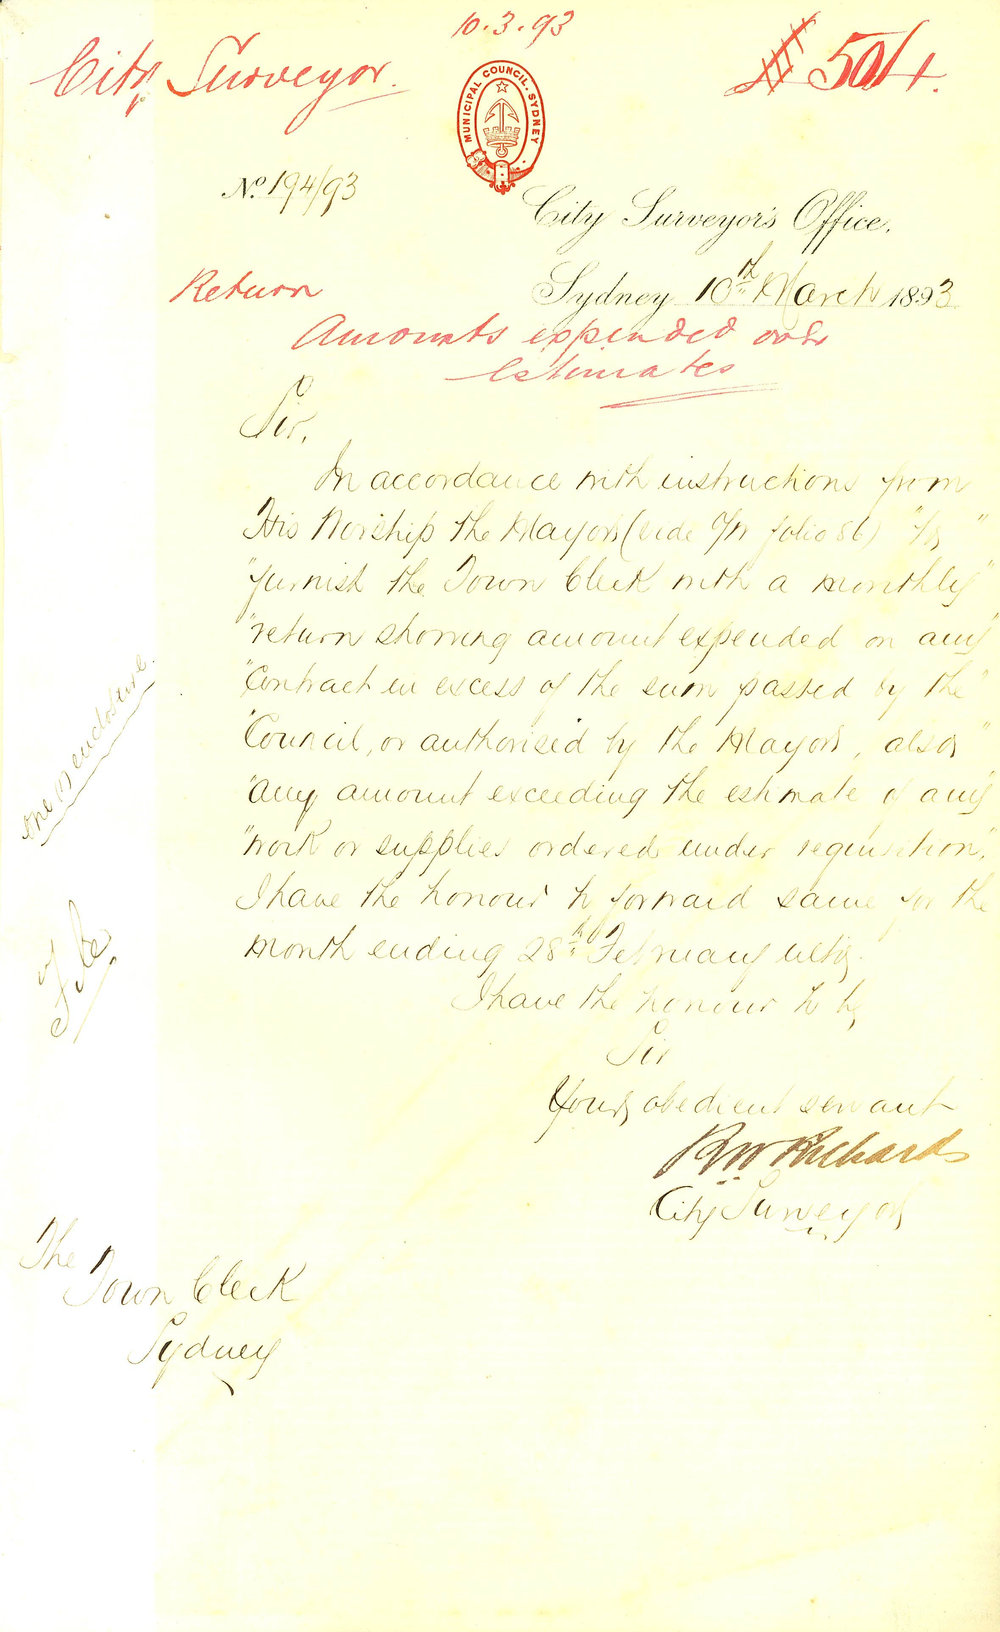 10.3.93
City Surveyor.
504.
MUNICIPAL COUNCIL. SYDNEY
No. 194/93
City Surveyor's Office.
Sydney 10th March 1893
Return
Amounts expended over
Estimates
Sir,
In accordance with instructions from
His Worship the Mayor (vide folio 86) "to"
"furnish the Town Clerk with a monthly"
"return showing amount expended on any"
"Contract in excess of the sum passed by the"
"Council, or authorised by the Mayor, also"
"any amount exceeding the estimate of any"
"work or supplies ordered under requisition."
I have the honour to forward same for the
month ending 28th February ulto.
I have the honour to be
Sir
Your obedient servant
RW Richards
City Surveyor
The
Town Clerk
Sydney
one enclosure.
File